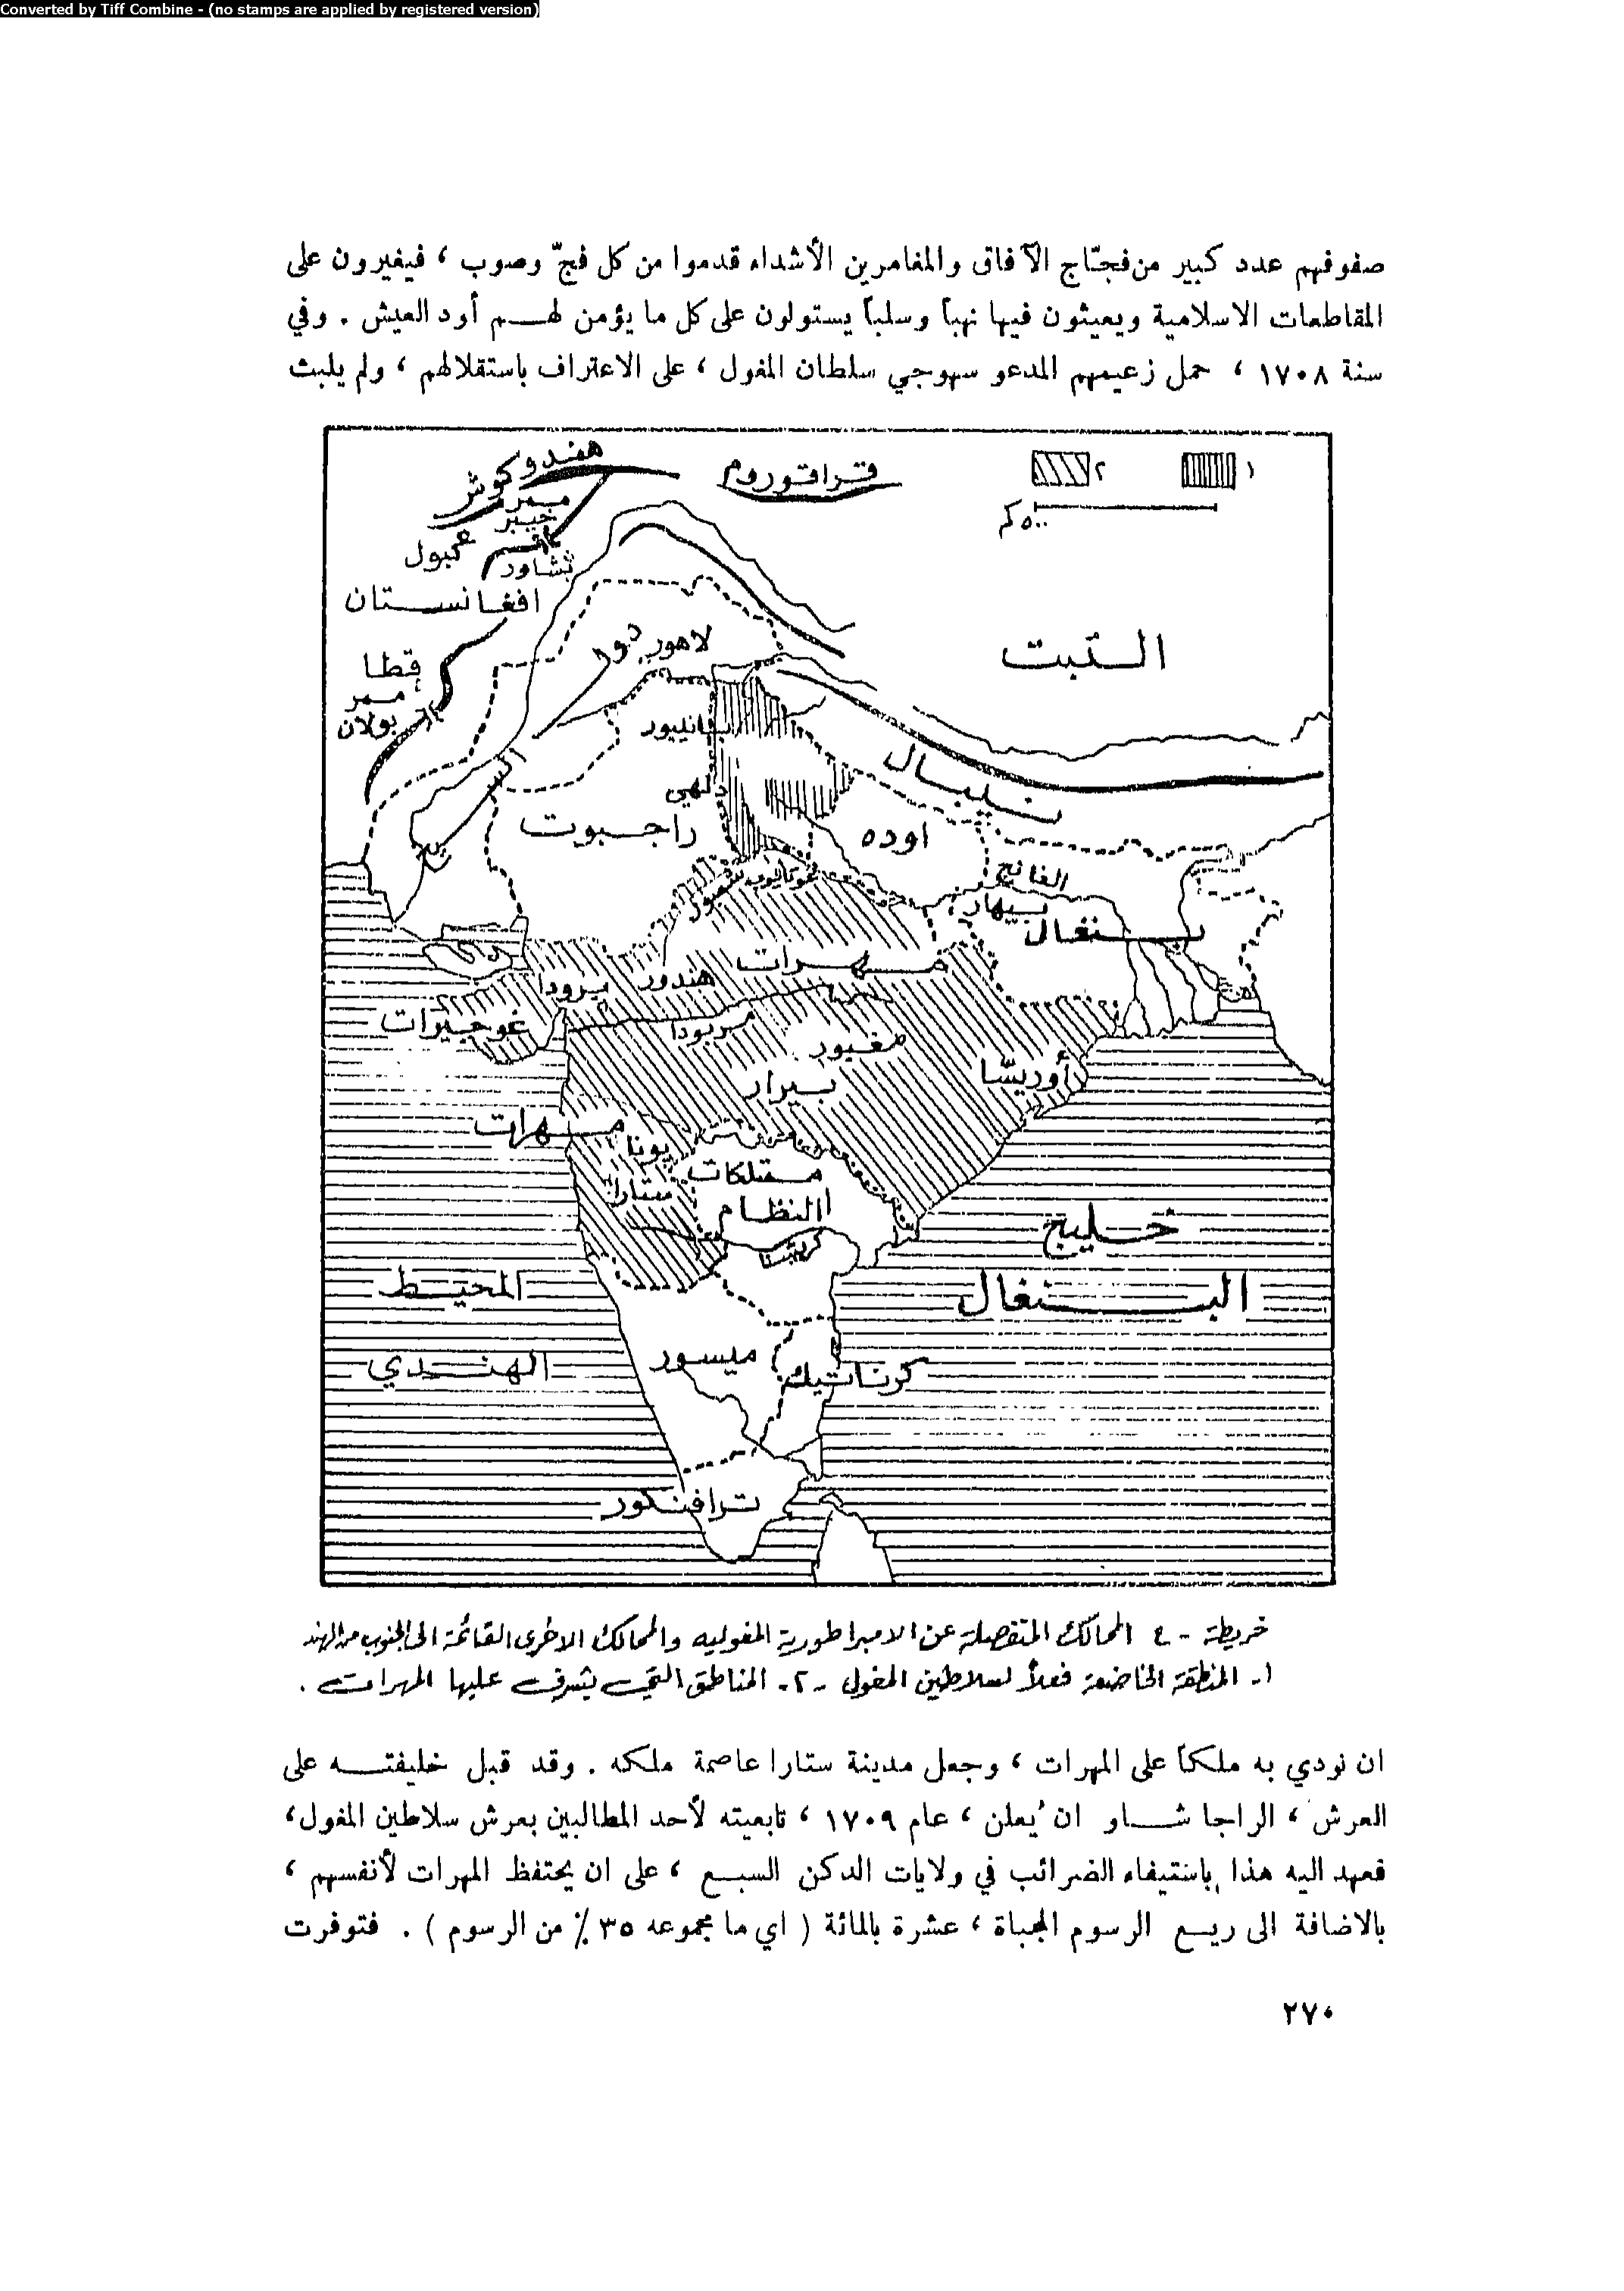 Converted by Tiff Combine - (no stamps are applied by registered version)
صفوفهم عدد كبير من فجّاج الآفاق والمغامرين الأشداء قدموا من كل فجّ وصوب ، فيغيرون على
المقاطعات الاسلامية ويعيثون فيها نهباً وسلباً يستولون على كل ما يؤمن لهــم أود العيش . وفي
سنة ١٧٠٨ ، حمل زعيمهم المدعو سهوجي سلطان المغول ، على الاعتراف باستقلالهم ، ولم يلبث
هندوكوش
قراقوروم
٢
١
٥٠٠ كم
ممر
خيبر
كبول
بشاور
افغانستان
لاهور
التبت
قطا
ممر
بولان
نيبال
دلهي
راجبوت
اوده
الغانج
بيهار
بنغال
مهرات
هندور
برودا
غوجيرات
مغبور
بيرار
أوريسّا
مهرات
بونا
ستارا
ممتلكات
النظام
كريشنا
خليج
البنغال
المحيط
الهندي
ميسور
كرناتيك
ترافنكور
خريطة - ٤ الممالك المنفصلة عن الامبراطورية المغوليه والممالك الاخرى القائمة الى الجنوب من الهند
١- المنطقة الخاضعة فعلاً لسلاطين المغول - ٢- المناطق التي يشرف عليها المهرات .
ان نودي به ملكاً على المهرات ، وجعل مدينة ستارا عاصمة ملكه . وقد قبل خليفتــه على
العرش ، الراجا شــاو ان يُعلن ، عام ١٧٠٩ ، تابعيته لأحد المطالبين بعرش سلاطين المغول ،
فعهد اليه هذا باستيفاء الضرائب في ولايات الدكن السبع ، على ان يحتفظ المهرات لأنفسهم ،
بالاضافة الى ريــع الرسوم المجباة ، عشرة بالمائة ( اي ما مجموعه ٣٥ ٪ من الرسوم ) . فتوفرت
٢٧٠